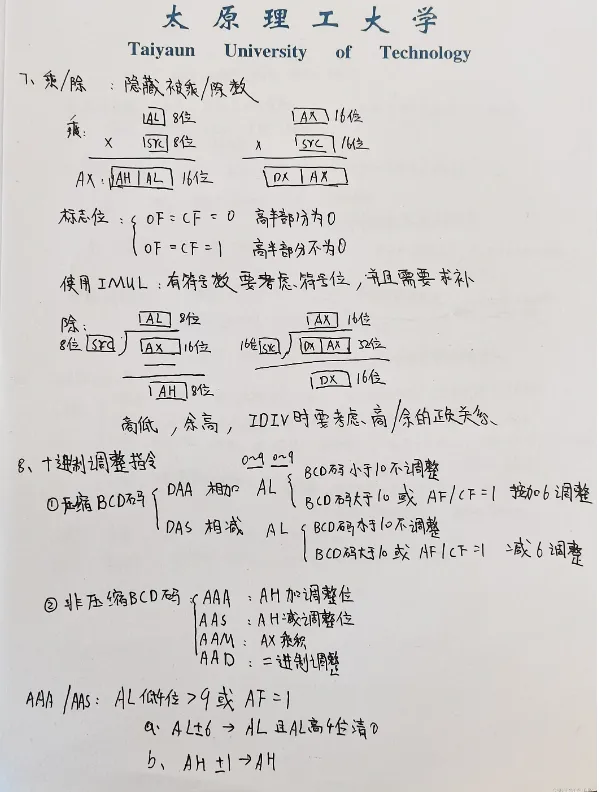 太原理工大学
Taiyaun University of Technology
7、乘/除：隐藏被乘/除数
乘：
AL 8位
× SrC 8位
AX：AH AL 16位
AX 16位
× SrC 16位
DX AX
标志位：OF=CF=0 高半部分为0
OF=CF=1 高半部分不为0
使用IMUL：有符号数要考虑符号位，并且需要求补
除：
AL 8位
8位 SrC AX 16位
AH 8位
AX 16位
16位 SrC DX AX 32位
DX 16位
商低，余高，IDIV时要考虑商/余的正负关系
8、十进制调整指令
0~9 0~9
①压缩BCD码
DAA 相加 AL
BCD码小于10不调整
BCD码大于10或 AF/CF=1 按加6调整
DAS 相减 AL
BCD码小于10不调整
BCD码大于10或 AF/CF=1 减6调整
②非压缩BCD码
AAA：AH加调整位
AAS：AH减调整位
AAM：AX乘积
AAD：二进制调整
AAA/AAS：AL低4位>9或AF=1
a、AL±6→AL且AL高4位清0
b、AH±1→AH